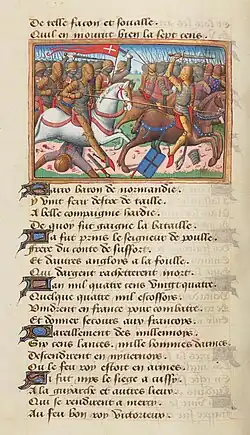 De telle facon et foualle
Quil en mourut bien la sept cens
baron de normandie
Y vint feru destre de taille
A belle compaignie hardie
De quoy fut gaigne la bataille
La fut prins le seigneur de poulle
frere du conte de suffort
Et dautres anglois a la foulle
Qui dargent racheterent mort
Lan mil quatre cens vingt quatre
Quelque quatre mil escossois
Vindrent en france pour combatre
Et donner secours aux francois
des millennois
Six cens lances mille hommes darmes
Descendirent en
Que le feu roy en armes
Si fut mys le siege a
A la guyarche et autres lieux
Qui se rendirent a mercy
Au feu bon roy victorieux